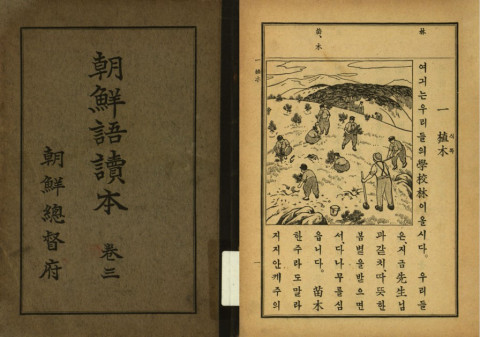 朝鮮語讀本 卷三
朝鮮總督府
林
苗木
一 植木
식목
여긔는우리들의學校林이올시다. 우리들
은,지금先生님
과갈치,따뜻한
봄볕을받으면
서,다나무를심
읍니다. 苗木
한주라도말라
지지안케주의